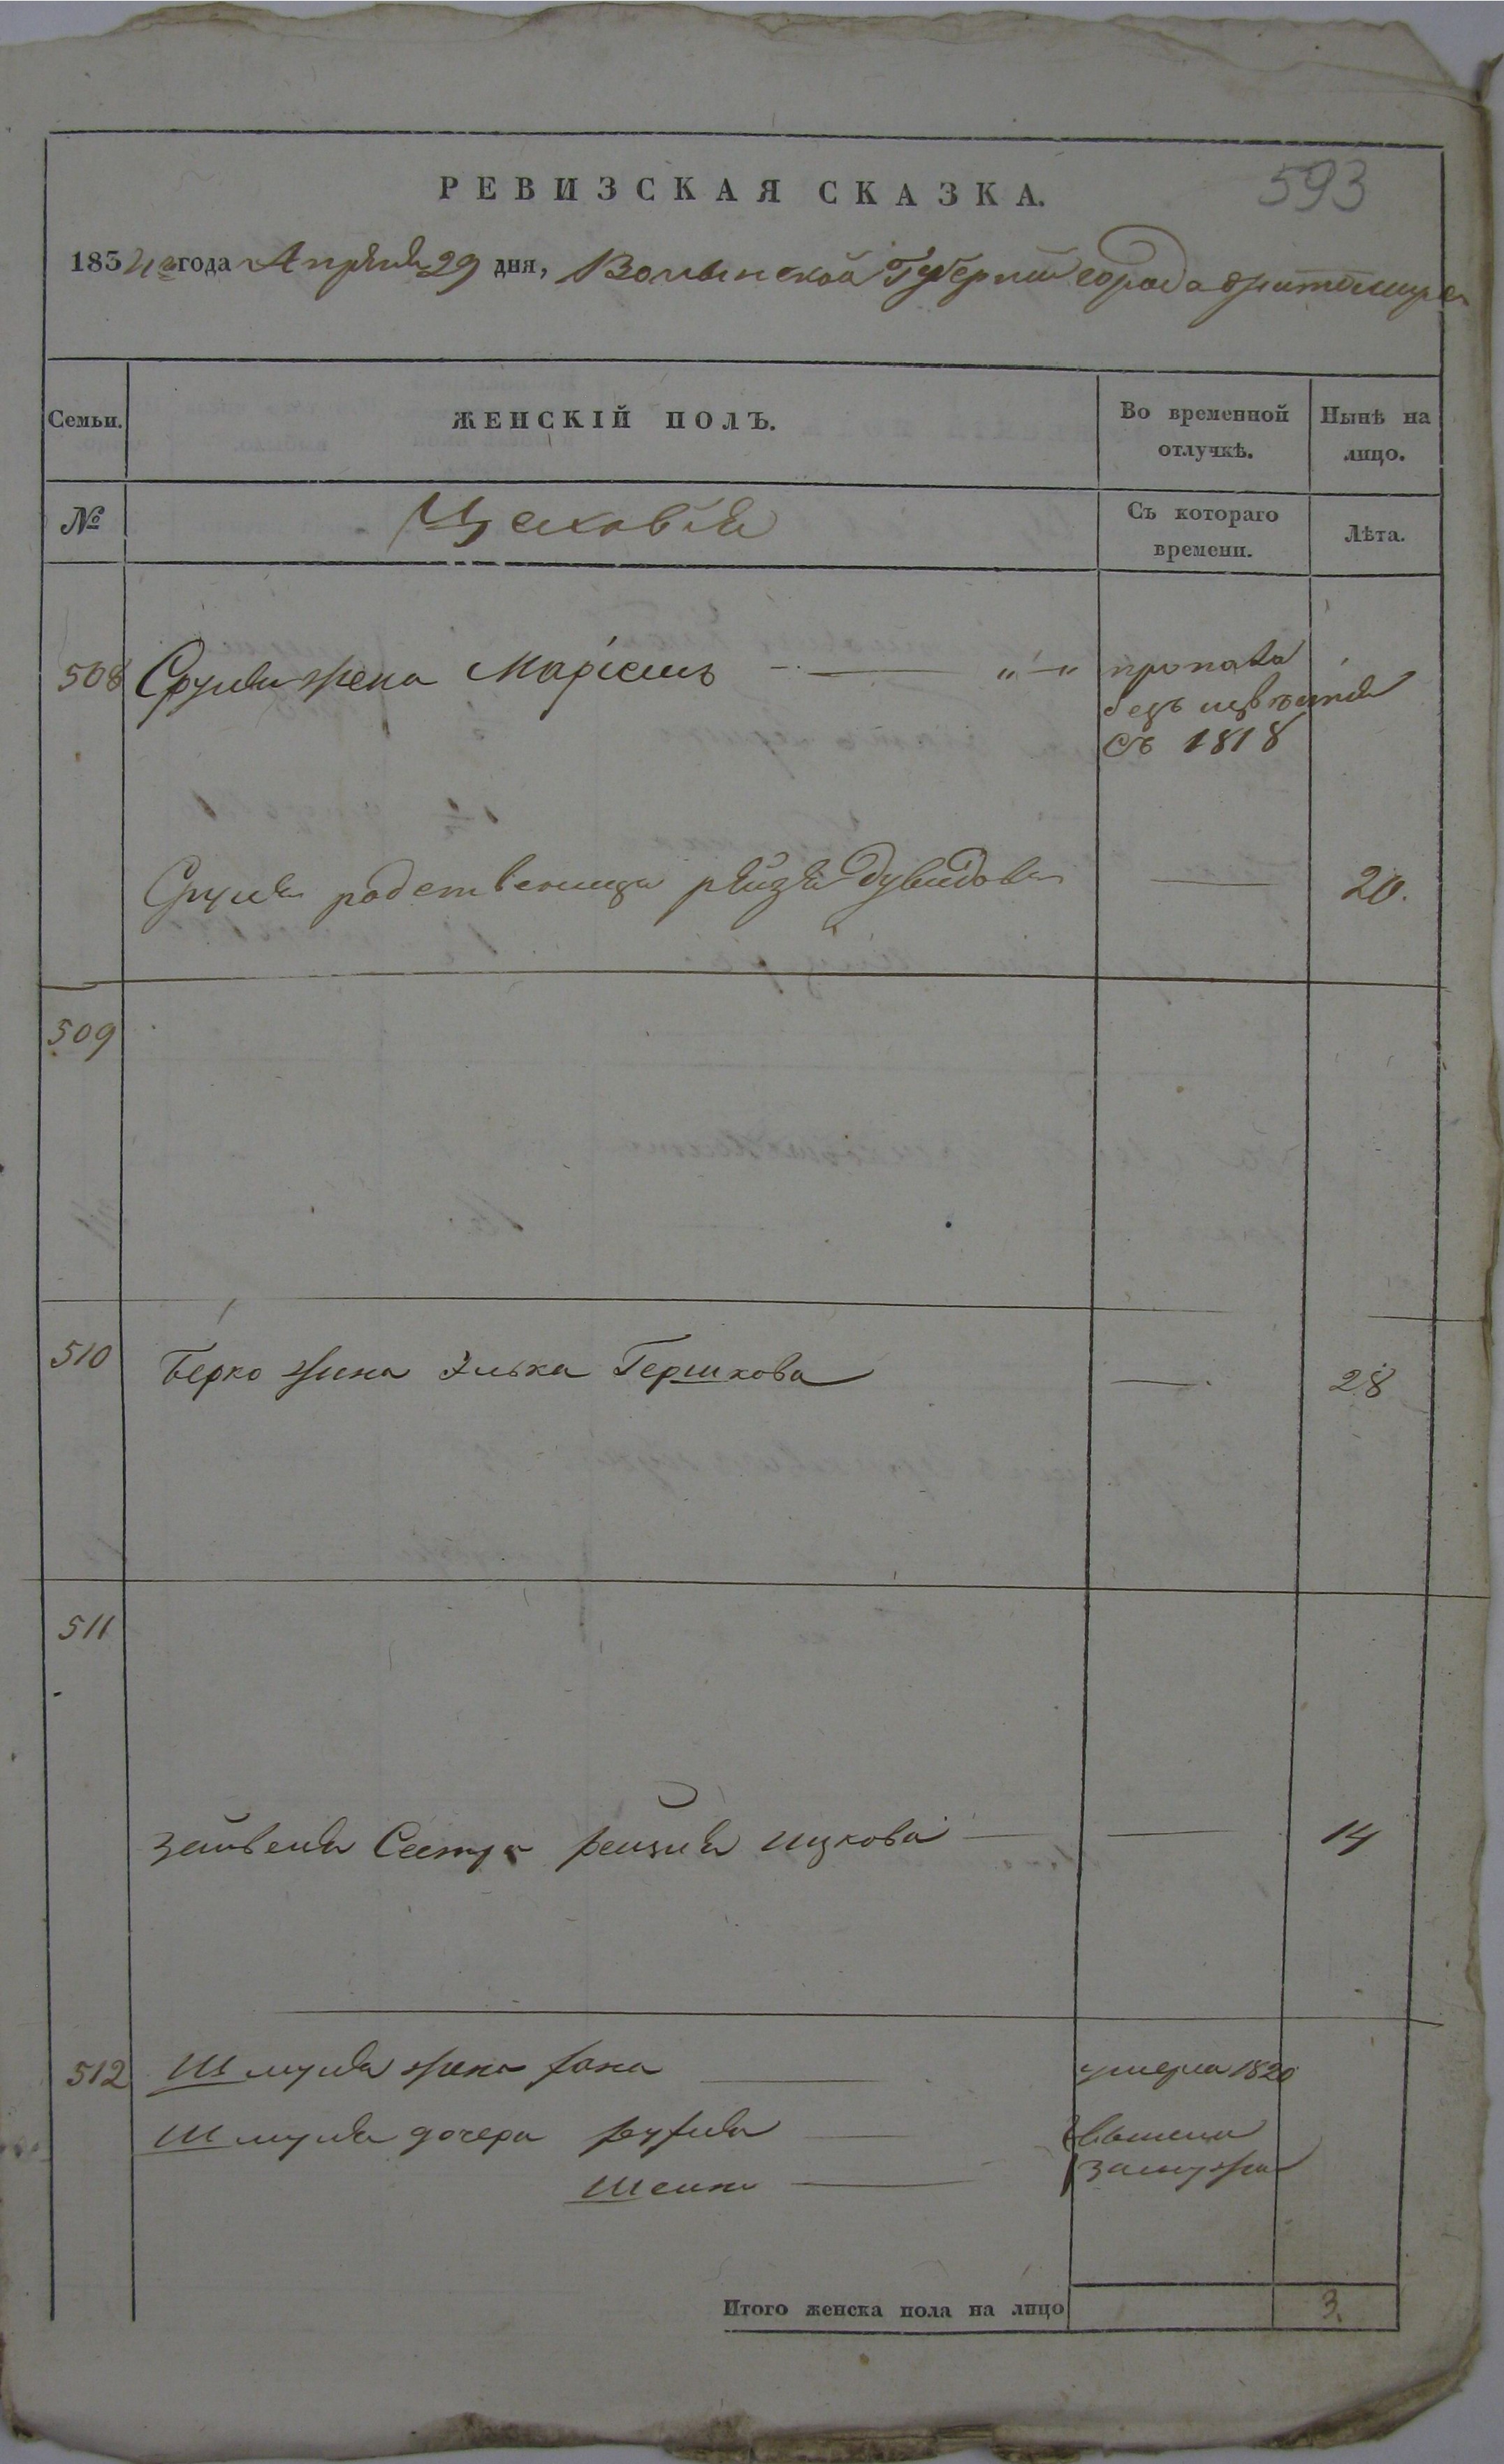 593
РЕВИЗСКАЯ СКАЗКА.
1834го года Апреля 29 дня, Волынской Губернии города Житомира
Семьи. ЖЕНСКІЙ ПОЛЪ. Во временной отлучкѣ. Нынѣ на лицо.
№ Цеховія Съ котораго времени. Лѣта.
508 Сруля жена Маріемъ — „—„ пропала
безъ извѣстія
съ 1818
Сруля родственница рейзя Дувидова — 20.
509
510 Берко жина Элька Гершкова — 28
511
Зейвеля Сестра рейзля ицкова — — 14
512 Шмуля жена хана — умерла 1820
Шмуля дочера рухля — вышли
Шейна — замужъ
Итого женска пола на лицо 3.